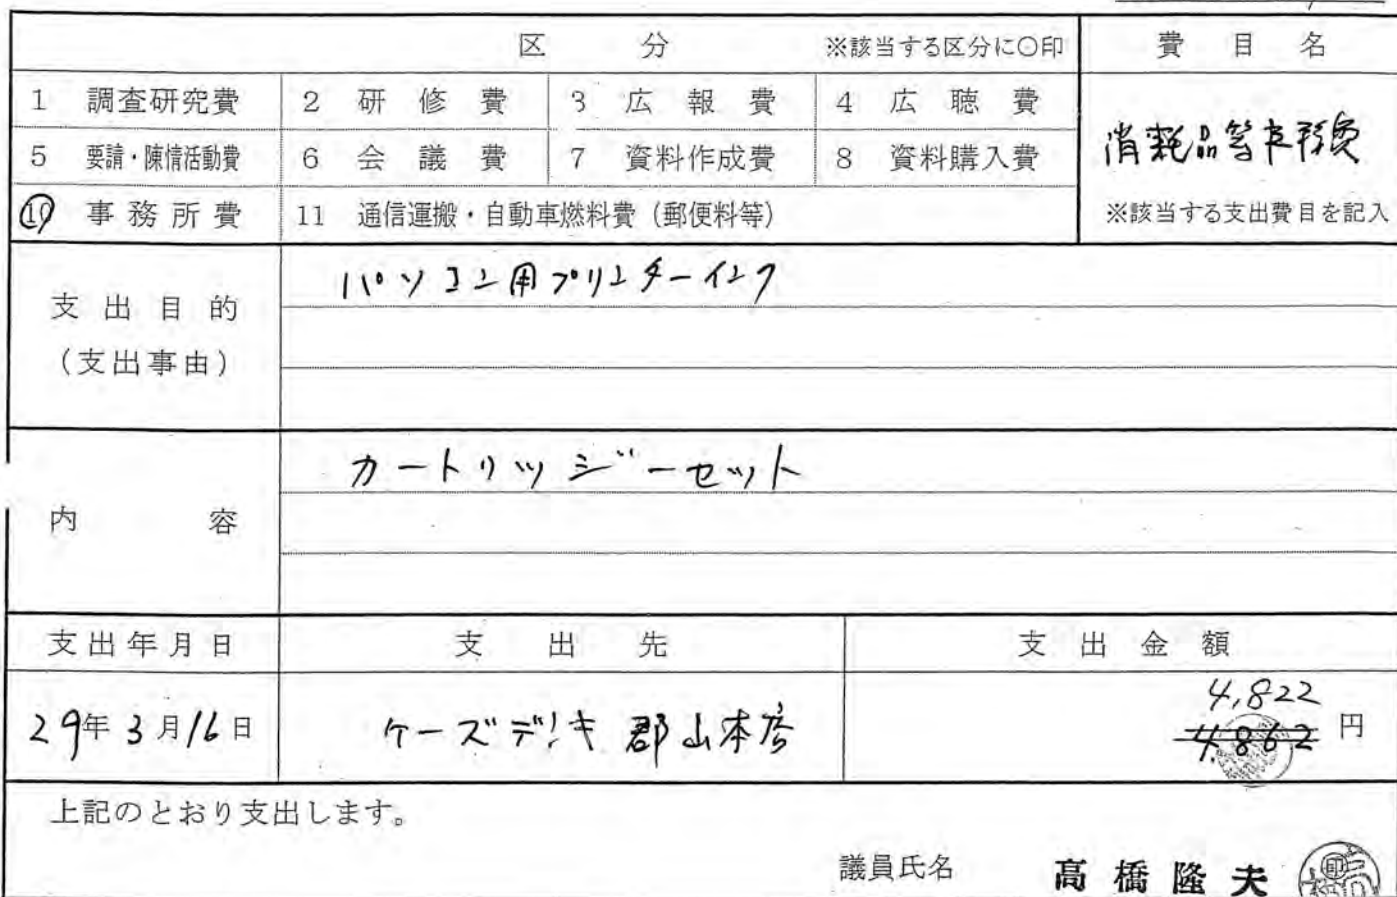 区 分 ※該当する区分に○印 費目名
1 調査研究費 2 研修費 3 広報費 4 広聴費
5 要請・陳情活動費 6 会議費 7 資料作成費 8 資料購入費
消耗品等
10 事務所費 11 通信運搬・自動車燃料費(郵便料等)
※該当する支出費目を記入
支出目的
(支出事由)
パソコン用プリンターインク
内容
カートリッジーセット
支出年月日 支出先 支出金額
4,822
29年3月16日 ケーズデンキ 郡山本店 4,862 円
上記のとおり支出します。
議員氏名 高橋隆夫